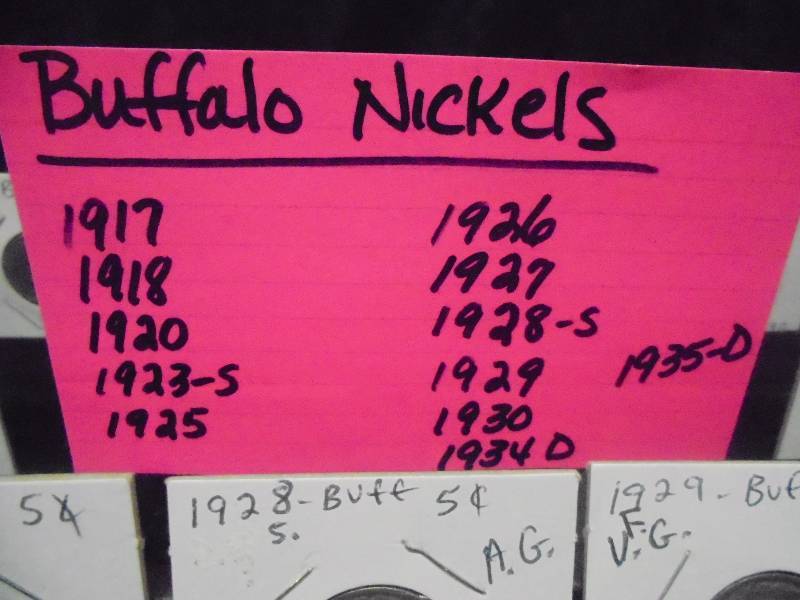 Buffalo Nickels
1917
1918
1920
1923-S
1925
1926
1927
1928-S
1929
1930
1934 D
1935-D
5¢
1928-Buff 5¢
S.
A.G.
1929-Buf
F.
V.G.